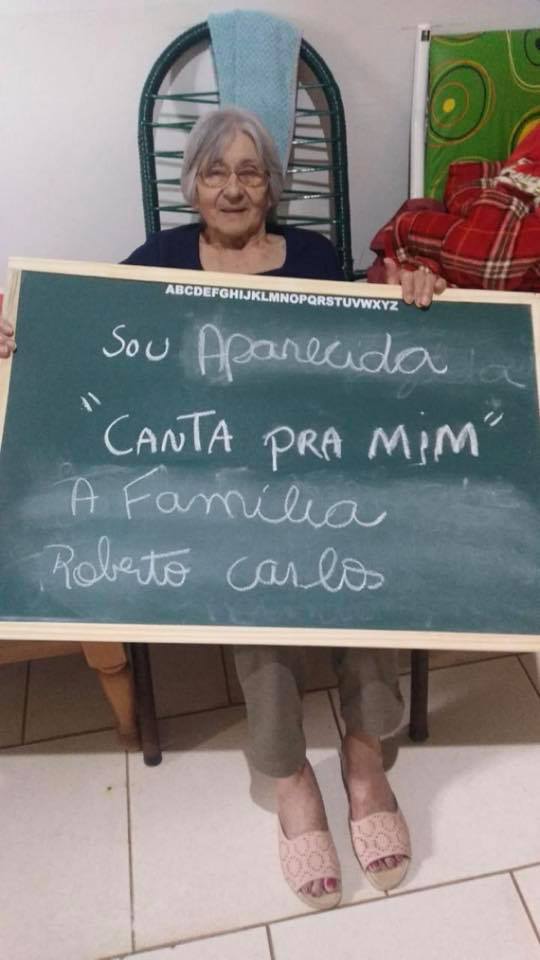 ABCDEFGHIJKLMNOPQRSTUVWXYZ
Sou Aparecida
"CANTA PRA MIM"
A Família
Roberto Carlos